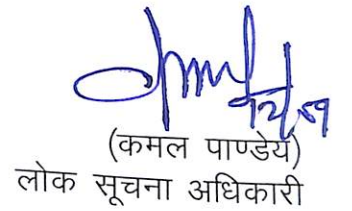 (कमल पाण्डेय)
लोक सूचना अधिकारी